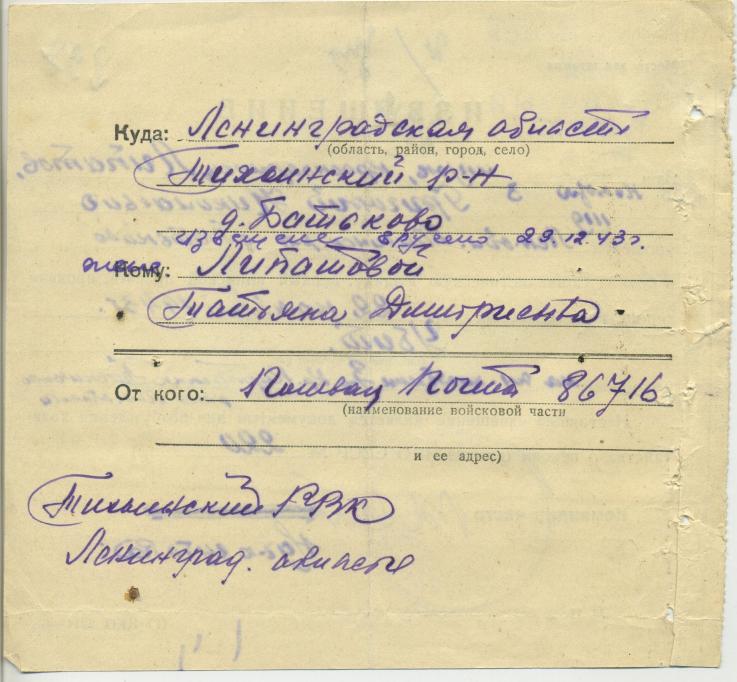 Куда: Ленинградская область
(область, район, город, село)
Тихвинский р-н
д. Батьково
Извещение вручено 29.12.43 г.
жене
Кому: Липатовой
Татьяна Дмитриевна
От кого: Полевая Почта 86716
(наименование войсковой части
и ее адрес)
Тихвинский РВК
Ленинград. области